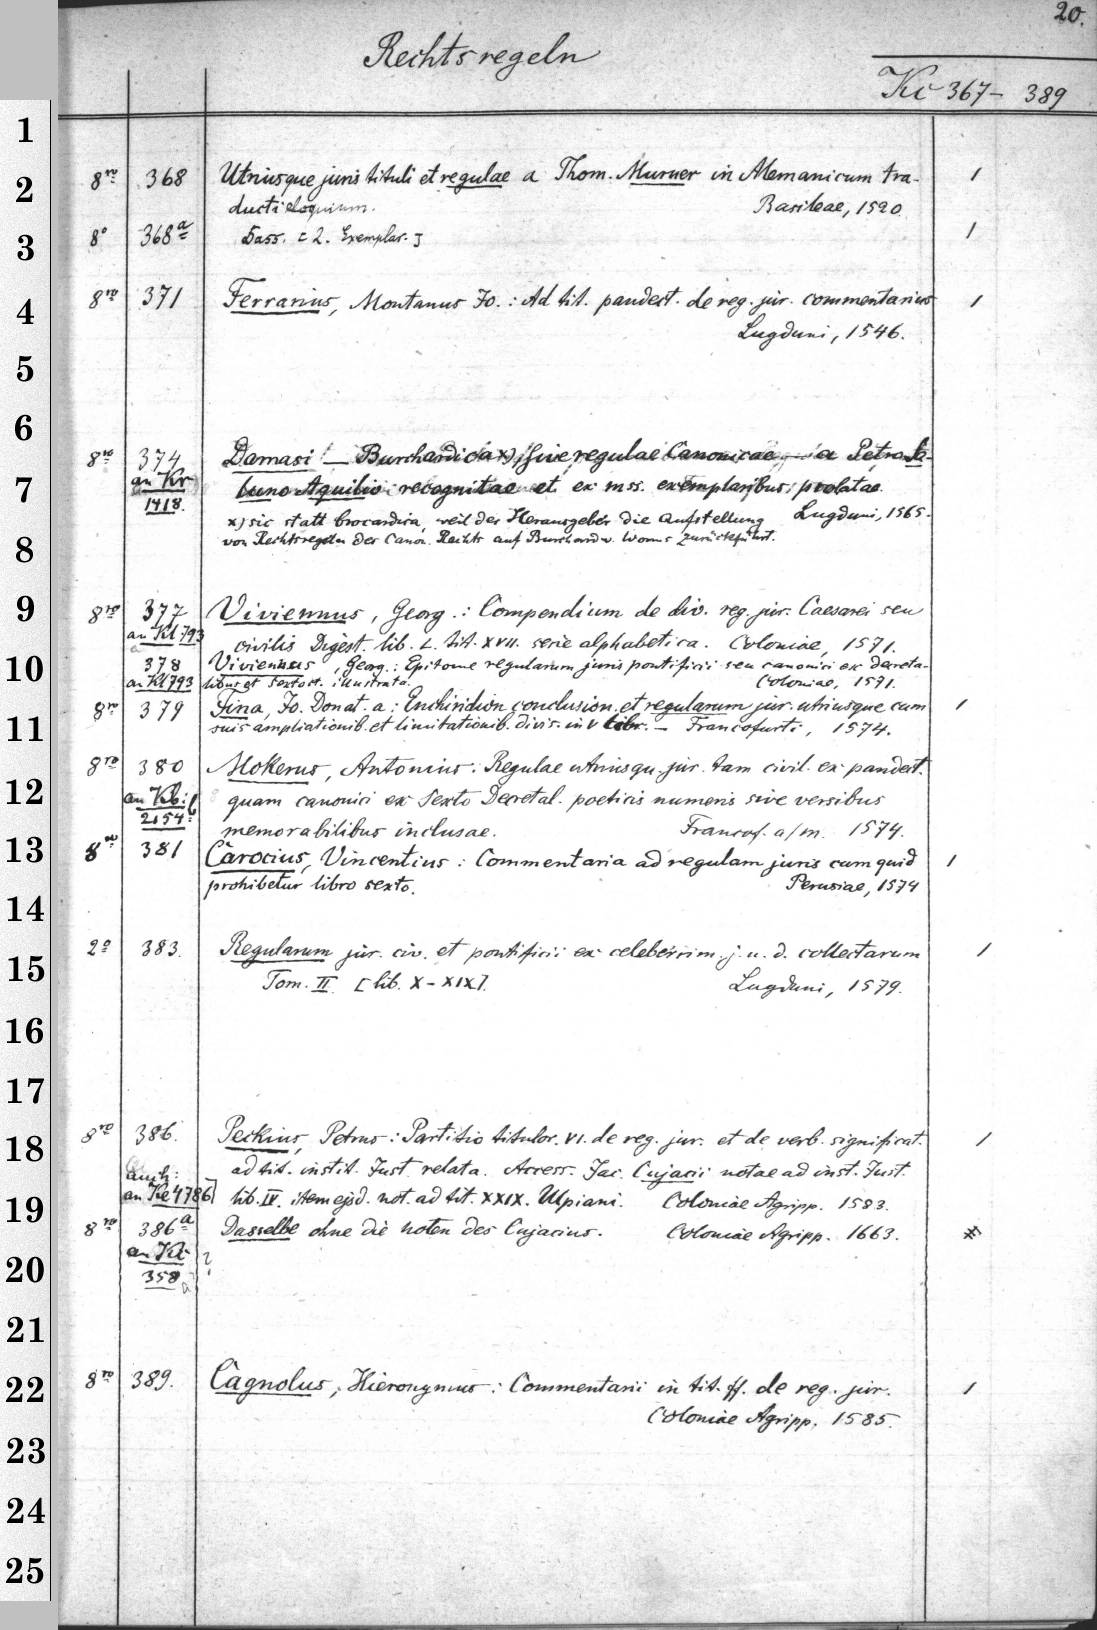 20.
Rechtsregeln
Kc 367 - 389
1
2
3
4
5
6
7
8
9
10
11
12
13
14
15
16
17
18
19
20
21
22
23
24
25
8vo 368 Utriusque juris tituli et regulae a Thom. Murner in Alemanicum tra- 1
ducti eloquium. Basileae, 1520.
8° 368a Dass. [2. Exemplar.] 1
8vo 371 Ferrarius, Montanus Jo.: Ad tit. pandect. de reg. jur. commentarius 1
Lugduni, 1546.
8vo 374 Damasi — Burchardica x) sive regulae Canonicae — a Petro
an Kr
1418.
Aquilio recognitae et ex mss. exemplaribus prolatae.
Lugduni, 1565.
x) sic statt brocardica, weil der Herausgeber die Aufstellung
von Rechtsregeln des Canon. Rechts auf Burchard v. Worms zurückführt.
8vo 377 Viviennus, Georg.: Compendium de div. reg. jur. Caesarei seu
an Kl 793
civilis Digest. lib. L. tit. XVII. serie alphabetica. Coloniae, 1571.
378 Viviennus, Georg.: Epitome regularum juris pontificii seu canonici ex decreta-
an Kl 793 libus et sexto et. illustrata. Coloniae, 1571.
8vo 379 Fina, Jo. Donat. a: Enchiridion conclusion. et regularum jur. utriusque cum 1
suis ampliationib. et limitationib. divis. in V libr. — Francofurti, 1574.
8vo 380 Mokerus, Antonius: Regulae utriusqu. jur. tam civil. ex pandect.
2154
quam canonici ex Sexto Decretal. poeticis numeris sive versibus
memorabilibus inclusae. Francof. a/m. 1574.
8vo 381 Carocius, Vincentius: Commentaria ad regulam juris cum quid 1
prohibetur libro sexto. Perusiae, 1574
2° 383. Regularum jur. civ. et pontificii ex celeberrim. j. u. d. collectarum 1
Tom. II [lib. X - XIX]. Lugduni, 1579.
8vo 386. Peckius, Petrus: Partitio titulor. VI. de reg. jur. et de verb. significat. 1
auch:
an Ke 4786]
ad tit. instit. Just. relata. Access. Jac. Cujacii notae ad inst. Just.
lib. IV. item ejsd. not. ad tit. XXIX. Ulpiani. Coloniae Agripp. 1583.
8vo 386a Dasselbe ohne die Noten des Cujacius. Coloniae Agripp. 1663.
358
8vo 389. Cagnolus, Hieronymus: Commentarii in tit. ff. de reg. jur. 1
Coloniae Agripp. 1585.